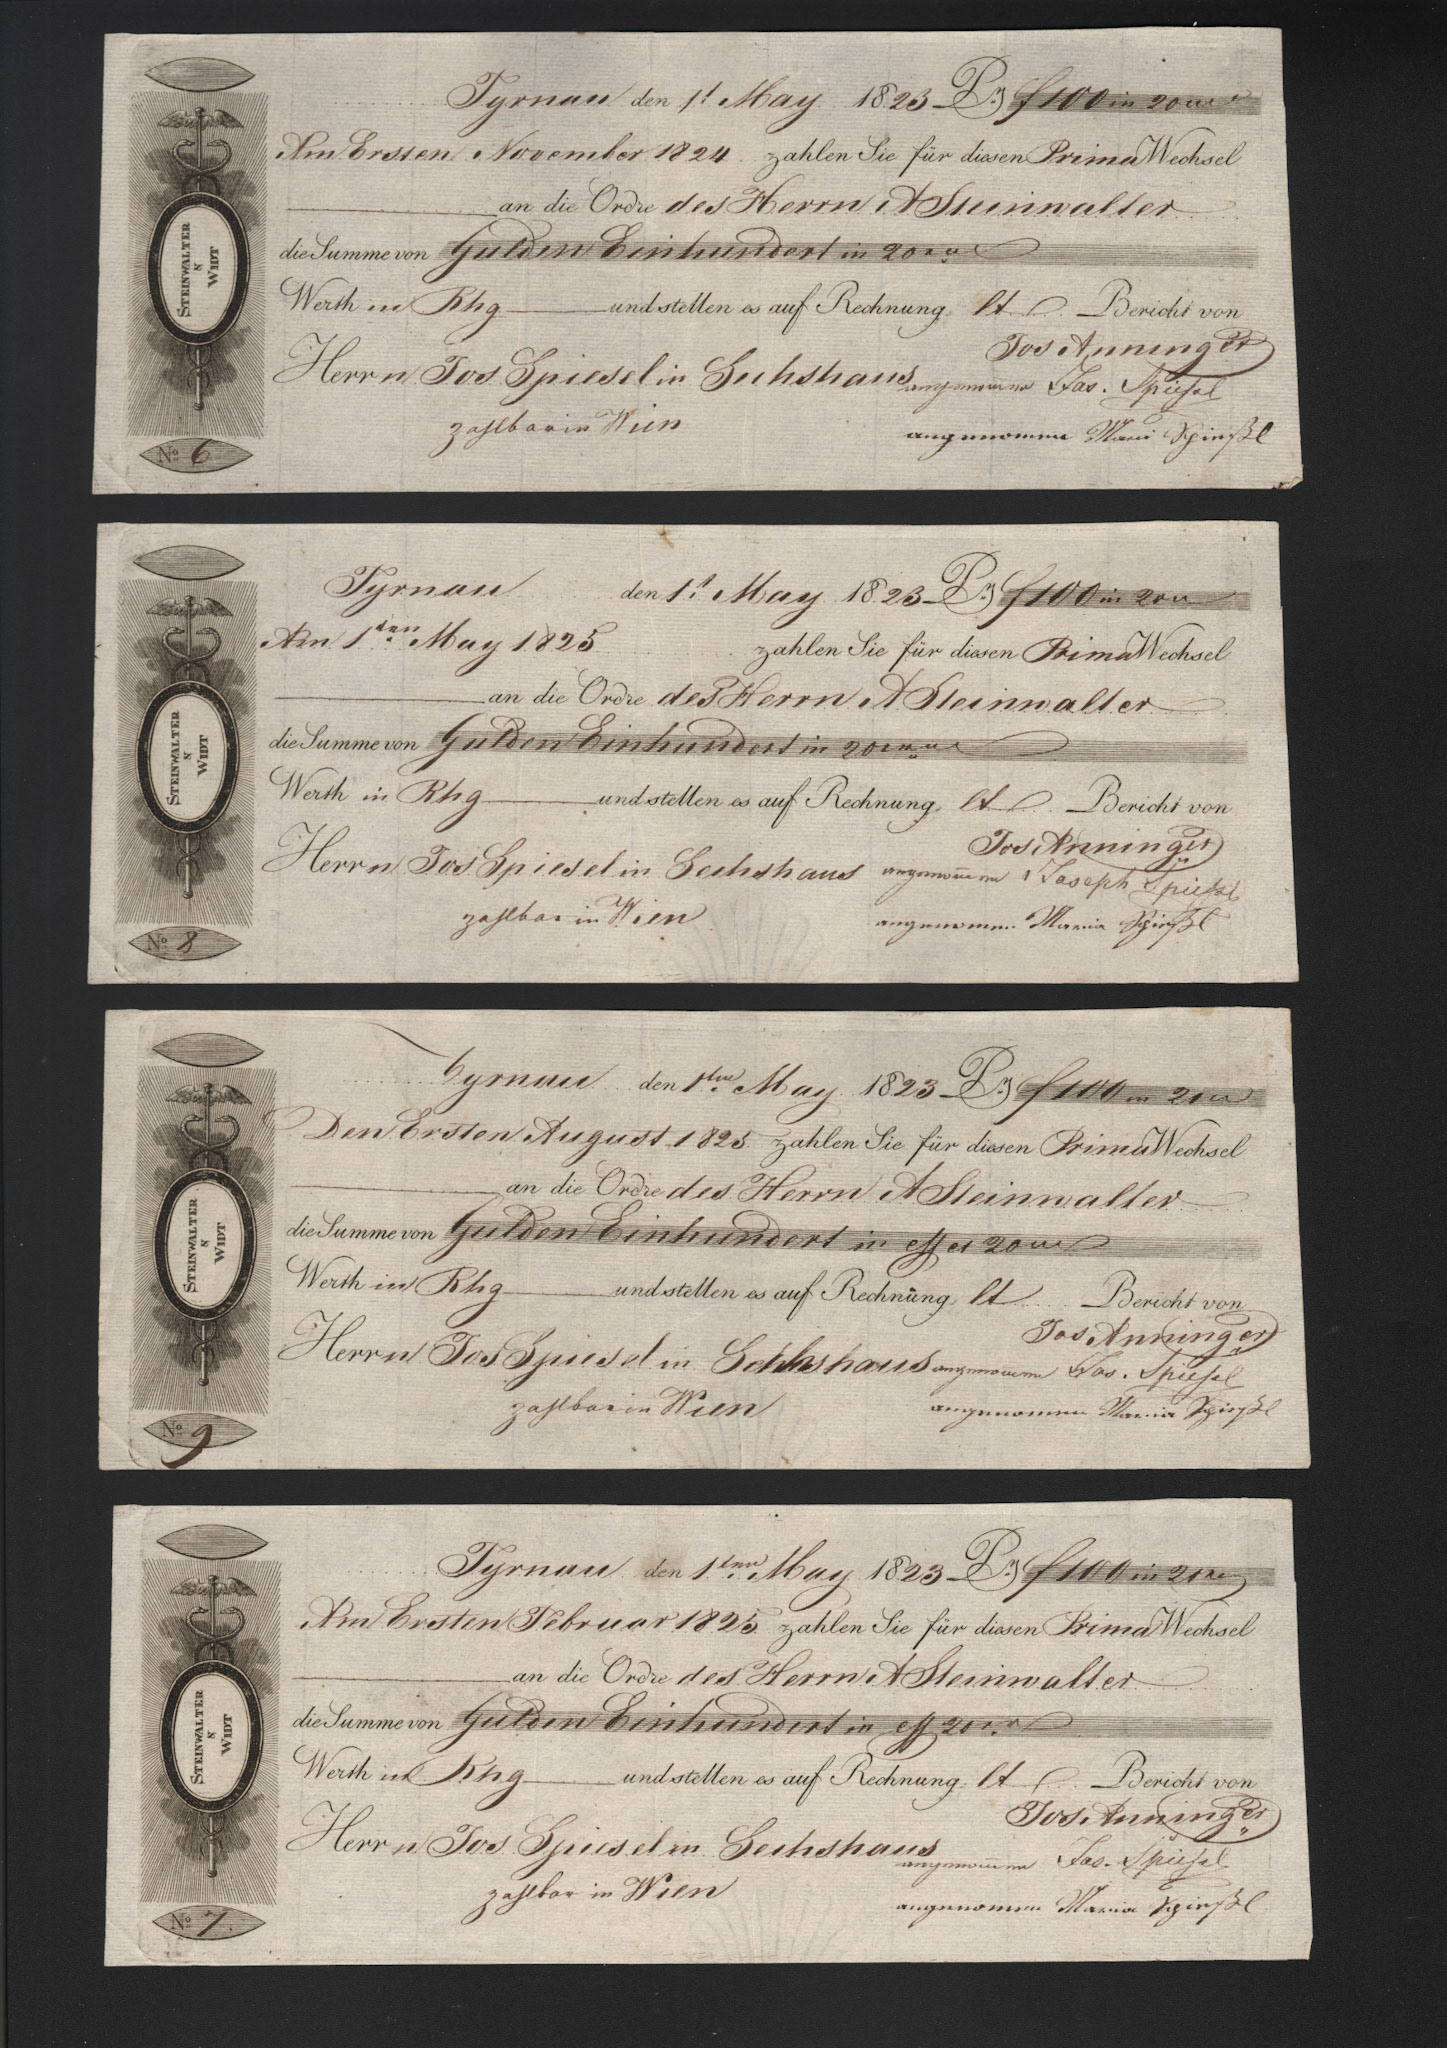 Tyrnau den 1t May 1823 Pr f 100 in 20ern
Am Ersten November 1824 zahlen Sie für diesen Prima Wechsel
an die Ordre des Herrn A Steinwalter
die Summe von Gulden Einhundert in 20ern
Werth in Rhg und stellen es auf Rechnung lt Bericht von
Jos Anninger
Herrn Jos Spiesel in Sechshaus angenommen Jos. Spießel
zahlbar in Wien angenommen Maria Spießl
STEINWALTER & WIDT
No 6
Tyrnau den 1t May 1823 Pr f 100 in 20ern
Am 1ten May 1825 zahlen Sie für diesen Prima Wechsel
an die Ordre des Herrn A Steinwalter
die Summe von Gulden Einhundert in 20ern
Werth in Rhg und stellen es auf Rechnung lt Bericht von
Jos Anninger
Herrn Jos Spiesel in Sechshaus angenommen Joseph Spießel
zahlbar in Wien angenommen Maria Spießl
STEINWALTER & WIDT
No 8
Tyrnau den 1ten May 1823 Pr f 100 in 20ern
Den Ersten August 1825 zahlen Sie für diesen Prima Wechsel
an die Ordre des Herrn A Steinwalter
die Summe von Gulden Einhundert in 20ern
Werth in Rhg und stellen es auf Rechnung lt Bericht von
Jos Anninger
Herrn Jos Spiesel in Sechshaus angenommen Jos. Spießel
zahlbar in Wien angenommen Maria Spießl
STEINWALTER & WIDT
No 9
Tyrnau den 1ten May 1823 Pr f 100 in 20ern
Am Ersten Februar 1825 zahlen Sie für diesen Prima Wechsel
an die Ordre des Herrn A Steinwalter
die Summe von Gulden Einhundert in eff 20ern
Werth in Rhg und stellen es auf Rechnung lt Bericht von
Jos Anninger
Herrn Jos Spiesel in Sechshaus angenommen Jos. Spießel
zahlbar in Wien angenommen Maria Spießl
STEINWALTER & WIDT
No 7